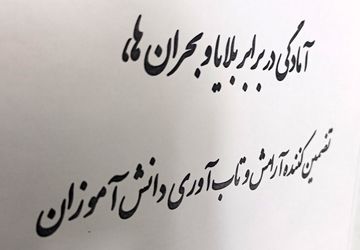 آمادگی در برابر بلایا و بحران ها،
تضمین کننده آرامش و تاب آوری دانش آموزان